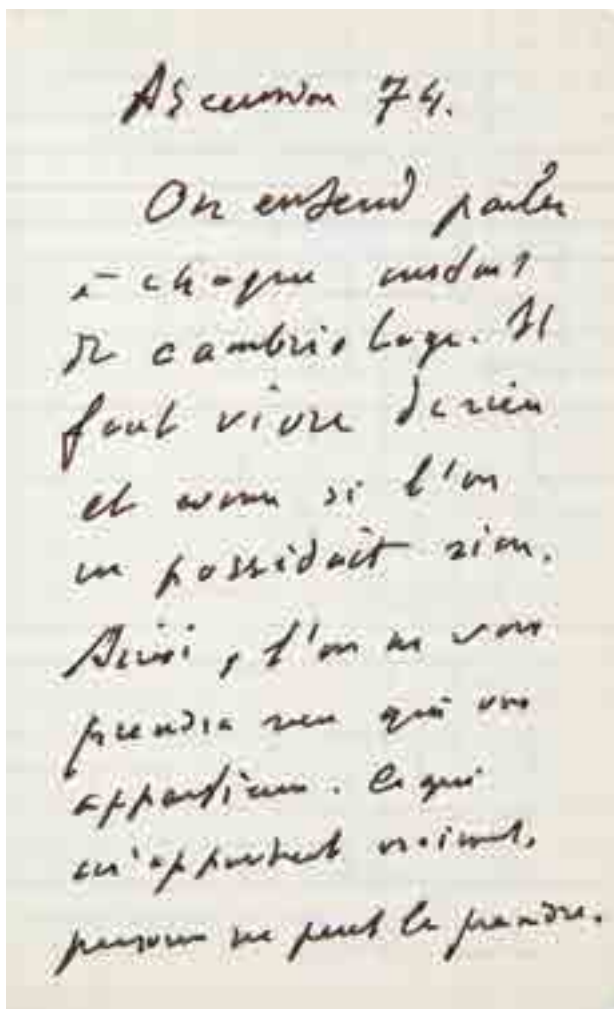 Ascension 74.
On entend parler
à chaque instant
de cambriolage. Il
faut vivre de rien
et comme si l'on
ne possédait rien.
Ainsi, l'on ne vous
prendra rien qui vous
appartienne. Ce qui
m'appartient vraiment,
personne ne peut le prendre.